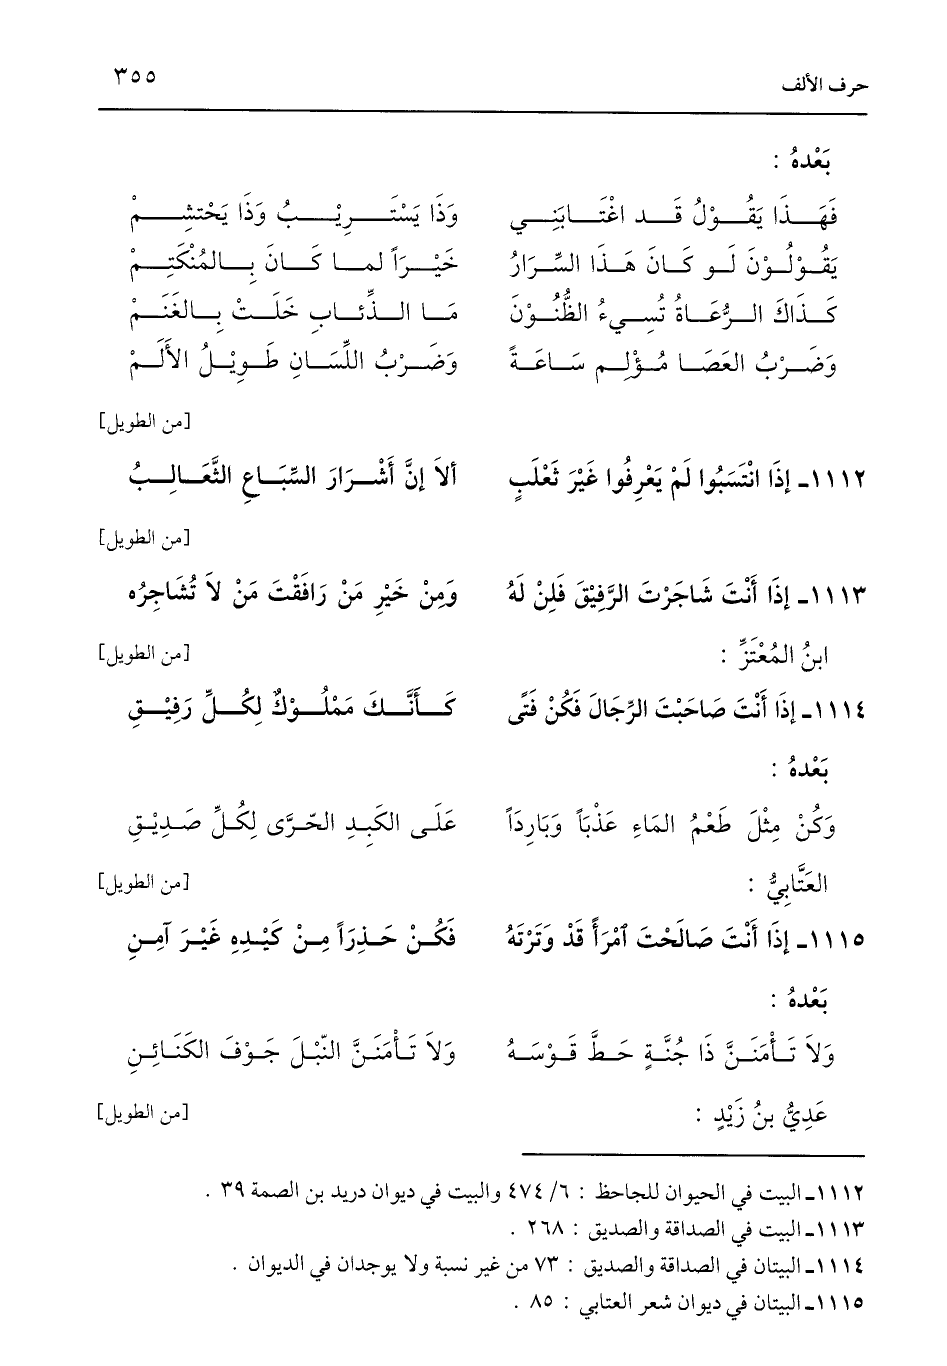 حرف الألف ٣٥٥
بَعْدهُ :
فَهَذَا يَقُوْلُ قَد اغْتَابَنِي وَذَا يَسْتَرِيْبُ وَذَا يَحْتشِمْ
يَقُوْلُوْنَ لَو كَانَ هَذَا السِّرَارُ خَيْراً لما كَانَ بِالمُنْكَتِمْ
كَذَاكَ الرُّعَاةُ تُسِيءُ الظُّنُوْنَ مَا الذِّئابِ خَلَتْ بِالغَنَمْ
وَضَرْبُ العَصَا مُؤْلِم سَاعَةً وَضَرْبُ اللِّسَانِ طَوِيْلُ الأَلَمْ
[من الطويل]
١١١٢ـ إذَا انْتَسَبُوا لَمْ يَعْرِفُوا غَيْرَ ثَعْلَبٍ ألاَ إنَّ أَشْرَارَ السِّبَاعِ الثَّعَالِبُ
[من الطويل]
١١١٣ـ إذَا أَنْتَ شَاجَرْتَ الرَّفِيْقَ فَلِنْ لَهُ وَمِنْ خَيْرِ مَنْ رَافَقْتَ مَنْ لاَ تُشَاجِرُه
ابنُ المُعْتَزِّ : [من الطويل]
١١١٤ـ إذَا أَنْتَ صَاحَبْتَ الرِّجَالَ فَكُنْ فَتًى كَأنَّكَ مَمْلُوْكٌ لِكُلِّ رَفِيْقِ
بَعْدهُ :
وَكُنْ مِثْلَ طَعْمُ المَاءِ عَذْباً وَبَارِداً عَلَى الكَبِدِ الحّرَّى لِكُلِّ صَدِيْقِ
العَتَّابِيُّ : [من الطويل]
١١١٥ـ إذَا أَنْتَ صَالَحْتَ ٱمْرَأً قَدْ وَتَرْتَهُ فَكُنْ حَذِرَاً مِنْ كَيْدِهِ غَيْرَ آمِنِ
بَعْدهُ :
وَلاَ تَأْمَنَنَّ ذَا جُنَّةٍ حَطَّ قَوْسَهُ وَلاَ تَأْمَنَنَّ النّبْلَ جَوْفَ الكَنَائِنِ
عَدِيُّ بنُ زَيْدٍ : [من الطويل]
١١١٢ـ البيت في الحيوان للجاحظ : ٦/ ٤٧٤ والبيت في ديوان دريد بن الصمة ٣٩ .
١١١٣ـ البيت في الصداقة والصديق : ٢٦٨ .
١١١٤ـ البيتان في الصداقة والصديق : ٧٣ من غير نسبة ولا يوجدان في الديوان .
١١١٥ـ البيتان في ديوان شعر العتابي : ٨٥ .